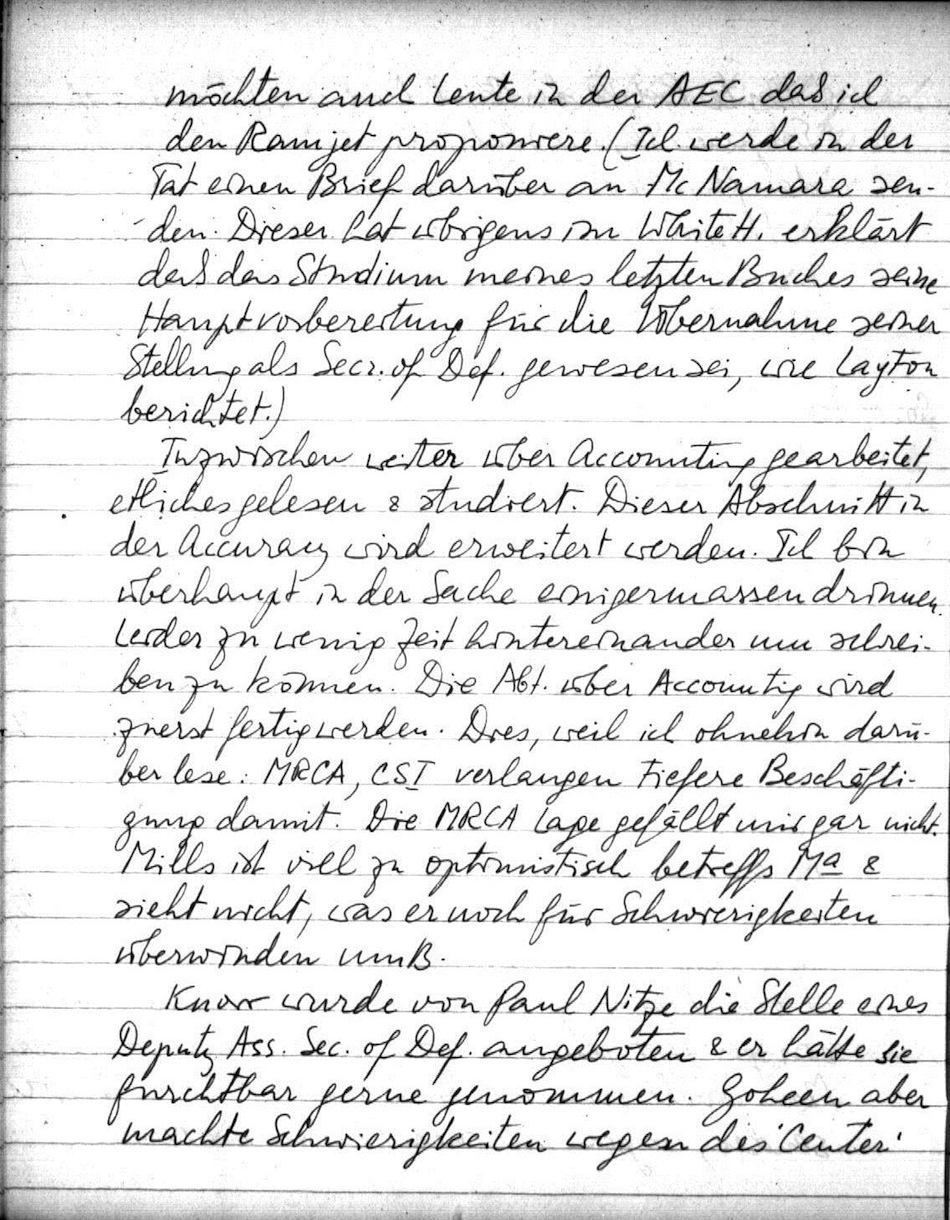 möchten auch Leute in der AEC daß ich
den Ramjet proponiere. (Ich werde in der
Tat einen Brief darüber an McNamara sen-
den. Dieser hat übrigens im White H. erklärt
daß das Studium meines letzten Buches seine
Hauptvorbereitung für die Übernahme seiner
Stellung als Secr. of Def. gewesen sei, wie Layton
berichtet.)
Inzwischen weiter über Accounting gearbeitet,
etliches gelesen & studiert. Dieser Abschnitt in
der Accuracy wird erweitert werden. Ich bin
überhaupt in der Sache einigermassen drinnen.
Leider zu wenig Zeit hintereinander um schrei-
ben zu können. Die Abt. über Accounting wird
zuerst fertig werden. Dies, weil ich ohnehin darü-
ber lese: MRCA, CSI verlangen tiefere Beschäfti-
gung damit. Die MRCA Lage gefällt mir gar nicht.
Mills ist viell zu optimistisch betreffs Ma &
sieht nicht, was er noch für Schwierigkeiten
überwinden muß.
Knorr wurde von Paul Nitze die Stelle eines
Deputy Ass. Sec. of Def. angeboten & er hätte sie
furchtbar gerne genommen. Goheen aber
machte Schwierigkeiten wegen des 'Center'